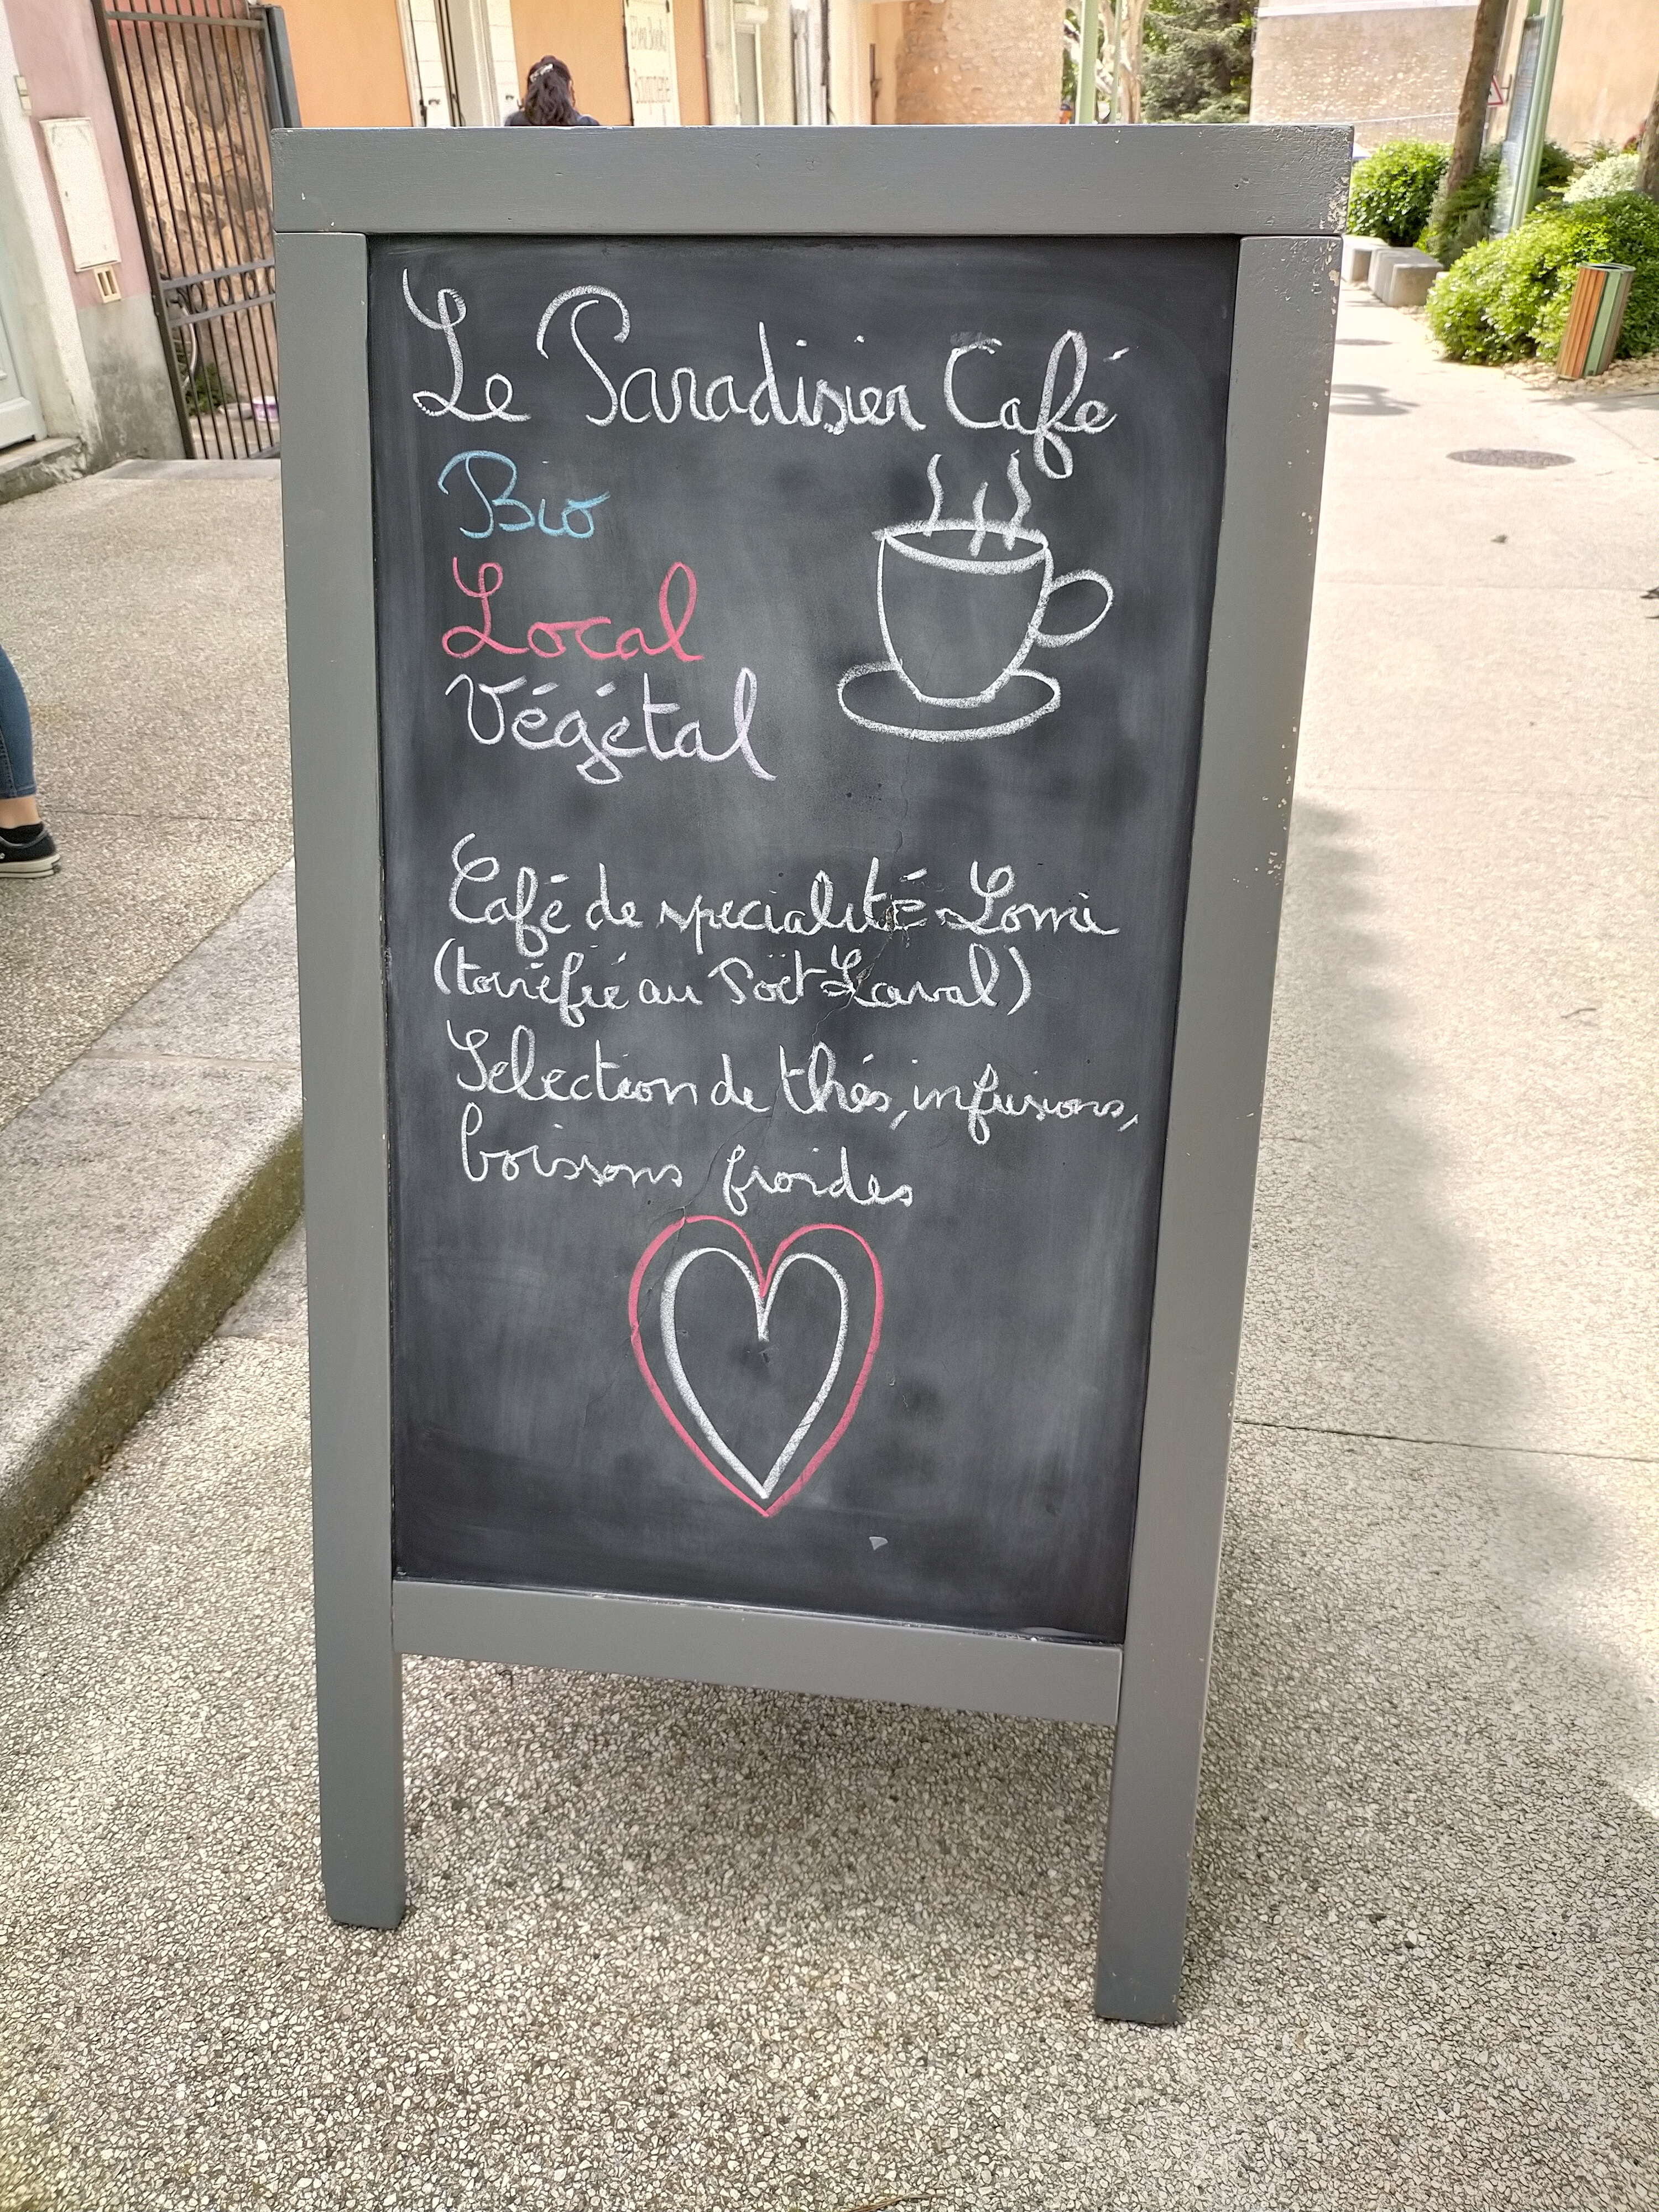 Le Paradisier Café
Bio
Local
Végétal
Café de spécialité Lomi
(torréfié au Poët-Laval)
Sélection de thés, infusions,
boissons froides